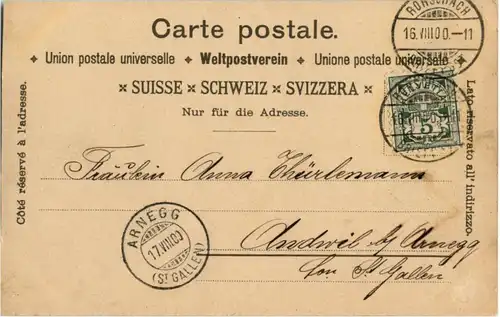 Carte postale.
RORSCHACH
16.VIII.00.-11
Union postale universelle ✦ Weltpostverein ✦ Unione postale universale
SUISSE × SCHWEIZ × SVIZZERA
Nur für die Adresse.
Côté réservé à l'adresse.
Lato riservato all' indirizzo.
5
Fräulein Anna Thürlemann
Andwil b/ Arnegg
St Gallen
ARNEGG
17.VIII.00
(ST GALLEN)